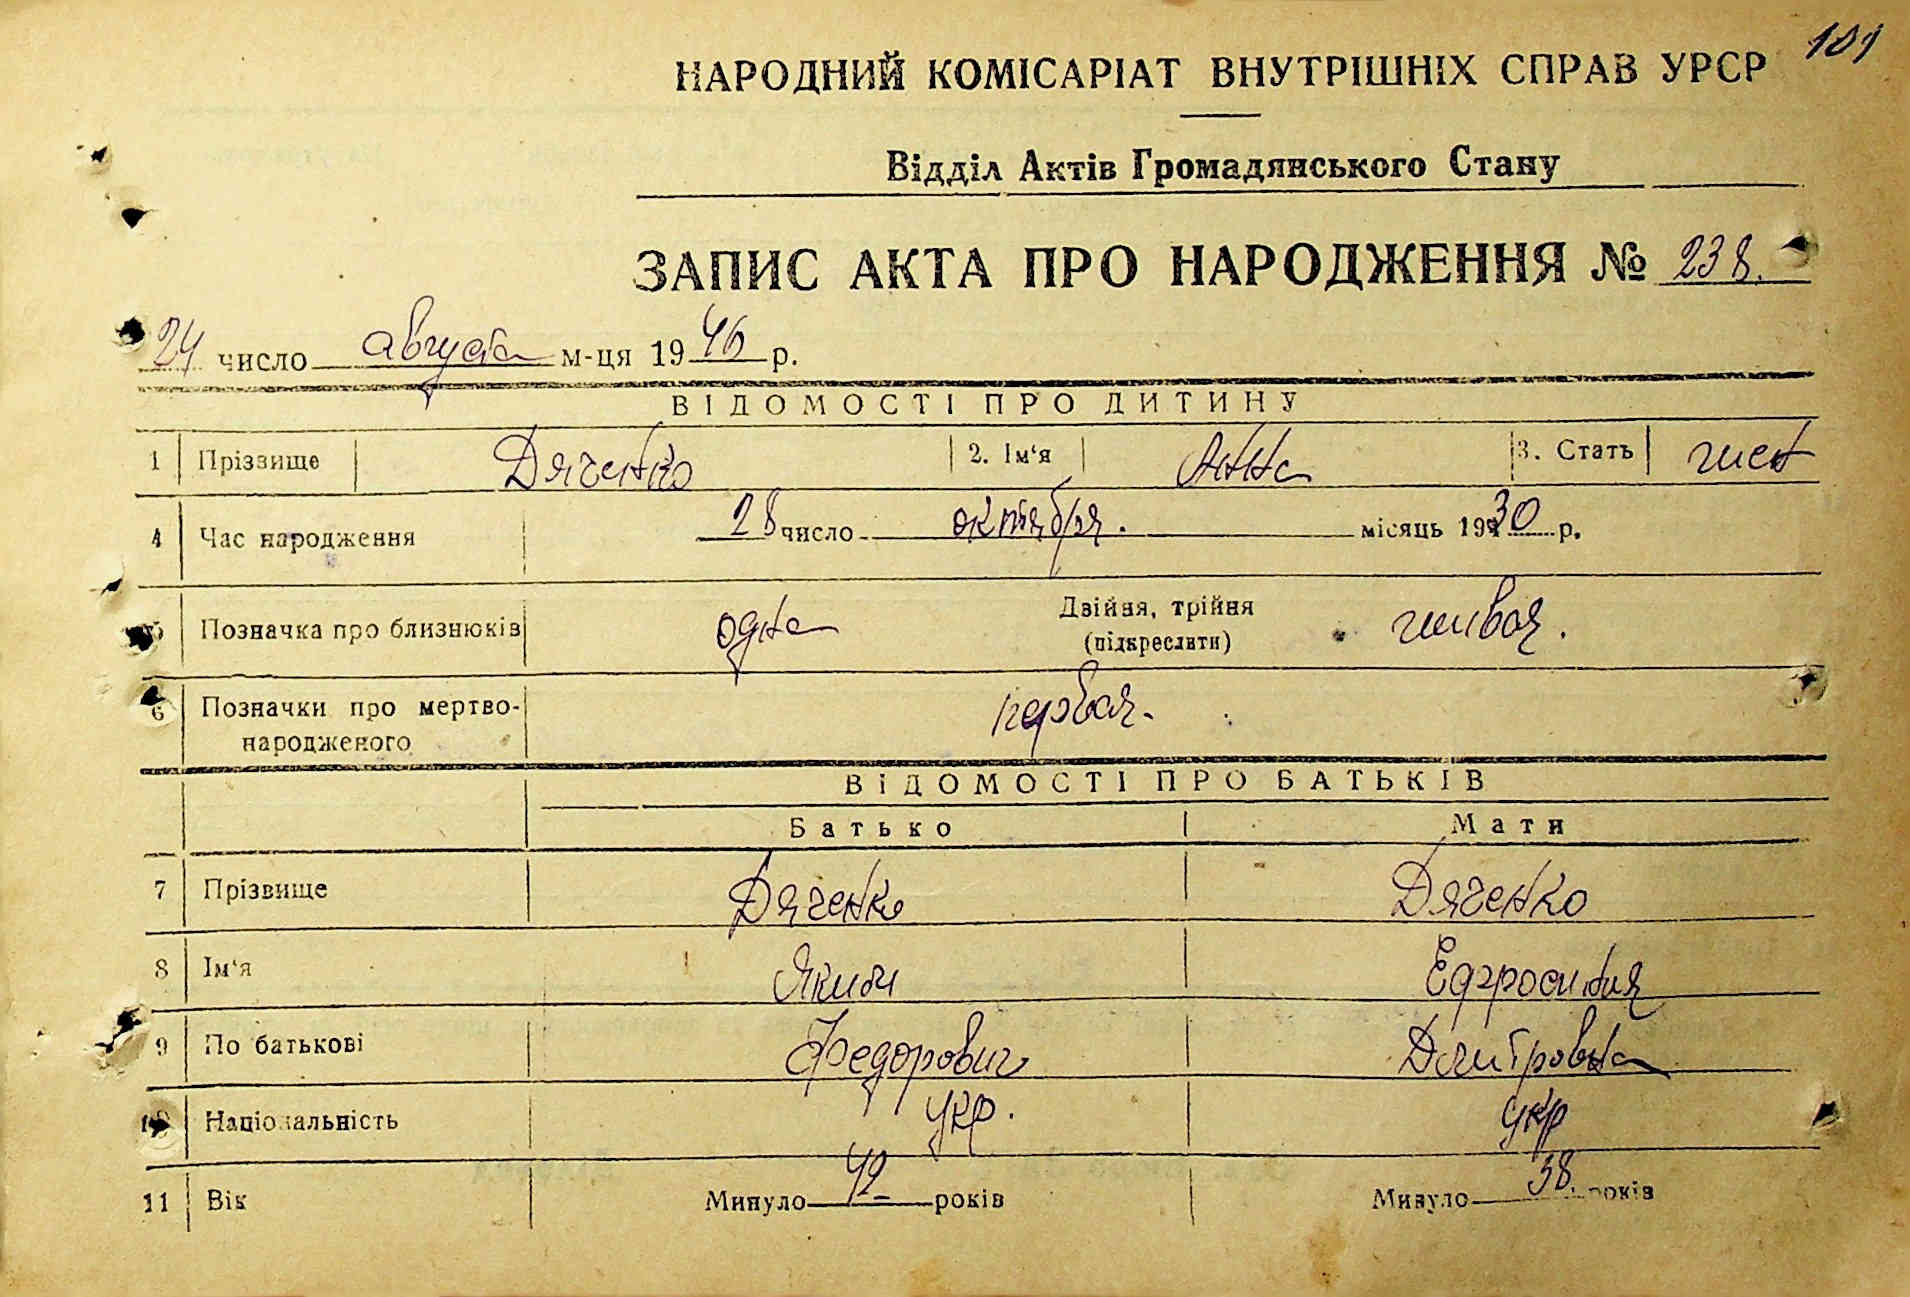 101
НАРОДНИЙ КОМІСАРІАТ ВНУТРІШНІХ СПРАВ УРСР
Відділ Актів Громадянського Стану
ЗАПИС АКТА ПРО НАРОДЖЕННЯ № 238.
24 число августа м-ця 1946 р.
ВІДОМОСТІ ПРО ДИТИНУ
1 Прізвище Дяченко 2. Ім‘я Анна 3. Стать жен
4 Час народження 28 число октября. місяць 1930 р.
5 Позначка про близнюків одна Двійня, трійня (підкреслити) живая.
6 Позначки про мертво-
народженого первая.
ВІДОМОСТІ ПРО БАТЬКІВ
Батько Мати
7 Прізвище Дяченко Дяченко
8 Ім‘я Яким Едфросиния
9 По батькові Федорович Дмитровна
10 Національність укр. укр
11 Вік Минуло 42 років Минуло 38. років